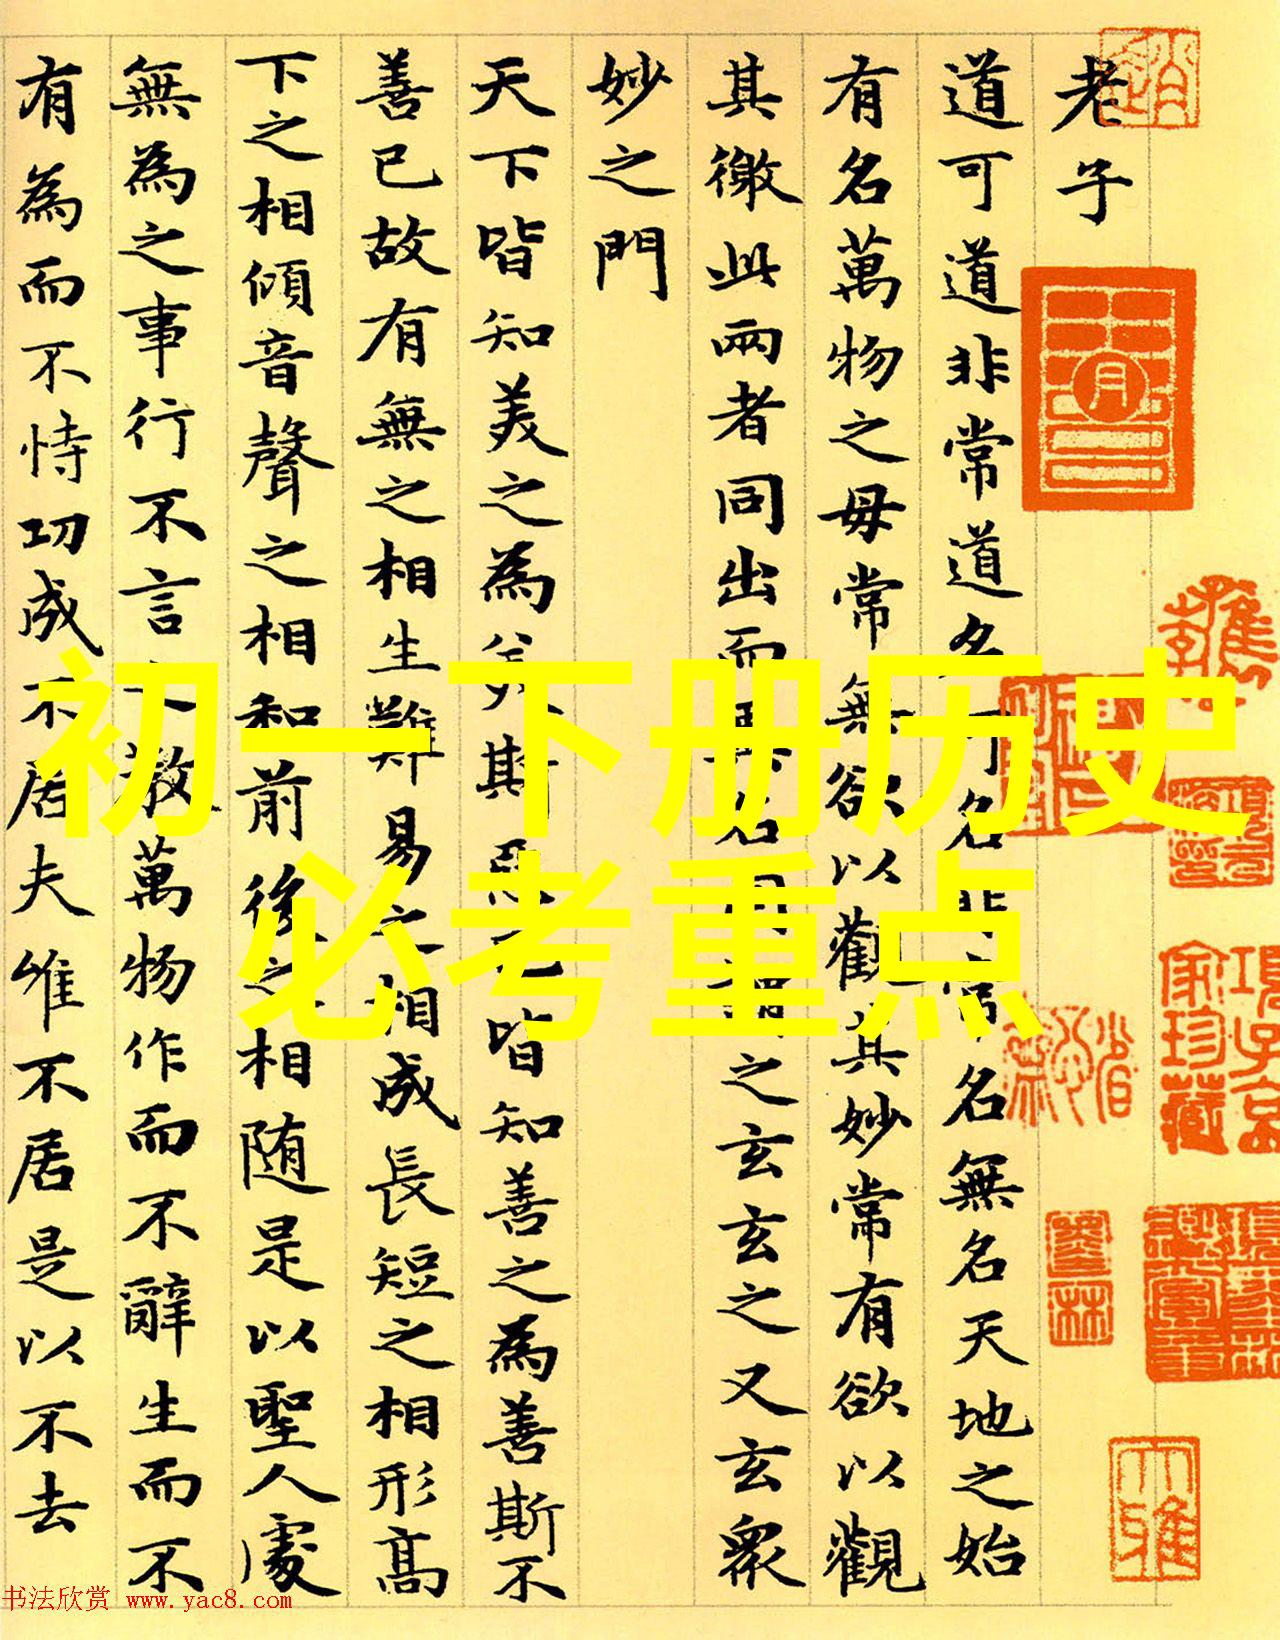 老子
道可道非常道名可名非常名無名天地之始
有名萬物之母常無欲以觀其妙常有欲以觀
其徼此兩者同出而異名同謂之玄玄之又玄衆
妙之門
天下皆知美之為美斯惡已皆知善之為善斯不
善已故有無之相生難易之相成長短之相形高
下之相傾音聲之相和前後之相随是以聖人處
無為之事行不言之教萬物作而不辭生而不
有為而不恃功成不居夫惟不居是以不去
初一下册历史
必考重点
項子京
家珍藏
书法欣赏 www.yac8.com